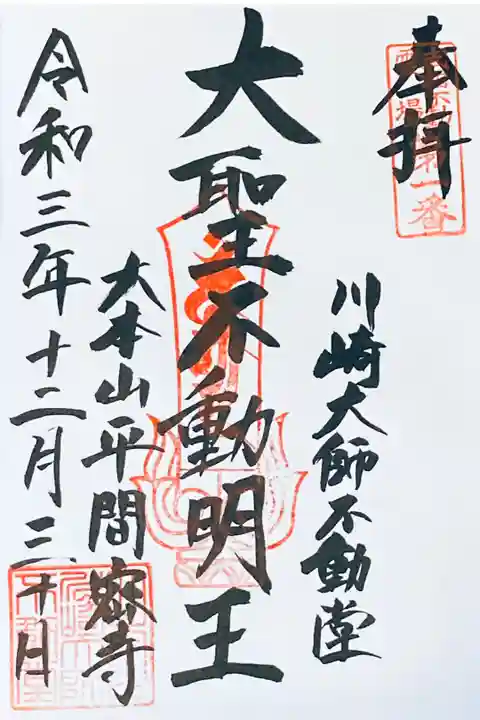 奉拝
川崎大師不動堂
大聖不動明王
大本山平間寺
令和三年十二月三十日
第一番